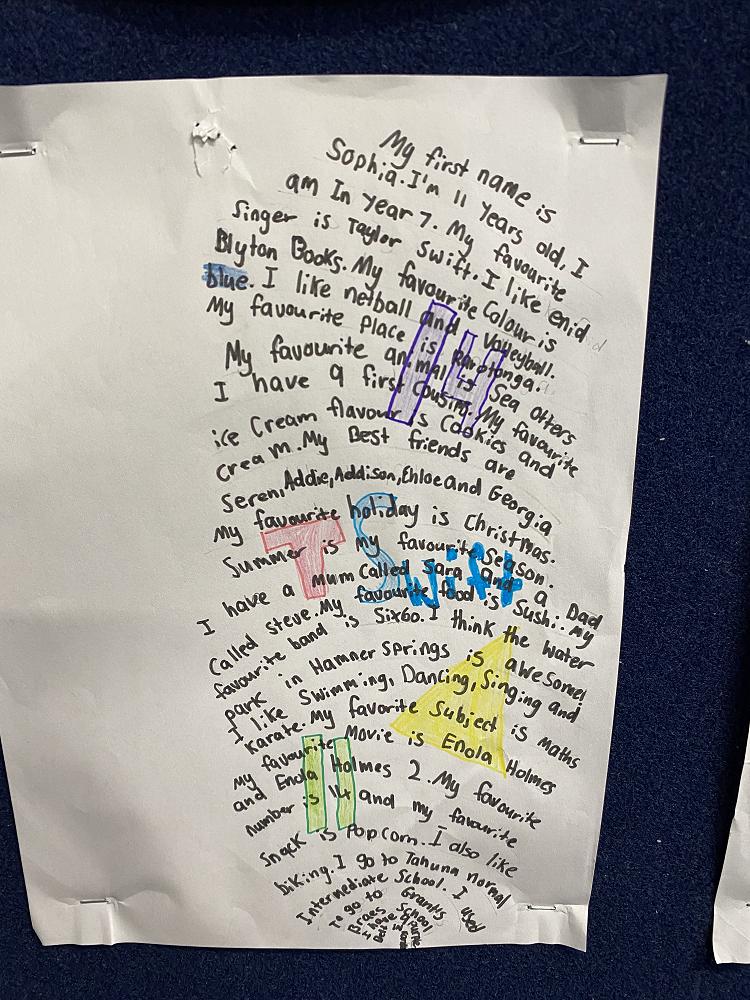 My first name is
Sophia. I'm 11 Years old, I
am In Year 7. My favourite
Singer is Taylor Swift. I like enid
Blyton Books. My favourite Colour is
blue. I like netball and Volleyball.
My favourite Place is Rarotonga.
My favourite animal is Sea Otters
I have 9 first Cousins. My favourite
ice Cream flavour is Cookies and
Cream. My Best friends are
Seren, Addie, Addison, Ehloe and Georgia
My favourite holiday is Christmas.
Summer is my favourite Season.
T Swift
I have a mum Called Sara and a Dad
Called steve. My favourite food is Sushi. My
favourite band is Six60. I think the water
park in Hamner Springs is awesome!
I like Swimming, Dancing, Singing and
Karate. My favorite Subject is maths
My favourite Movie is Enola Holmes
and Enola Holmes 2. My favourite
number is 14 and my favourite
Snack is Popcorn. I also like
biking. I go to Tahuna normal
Intermediate School. I used
To go to Grants
Braes School